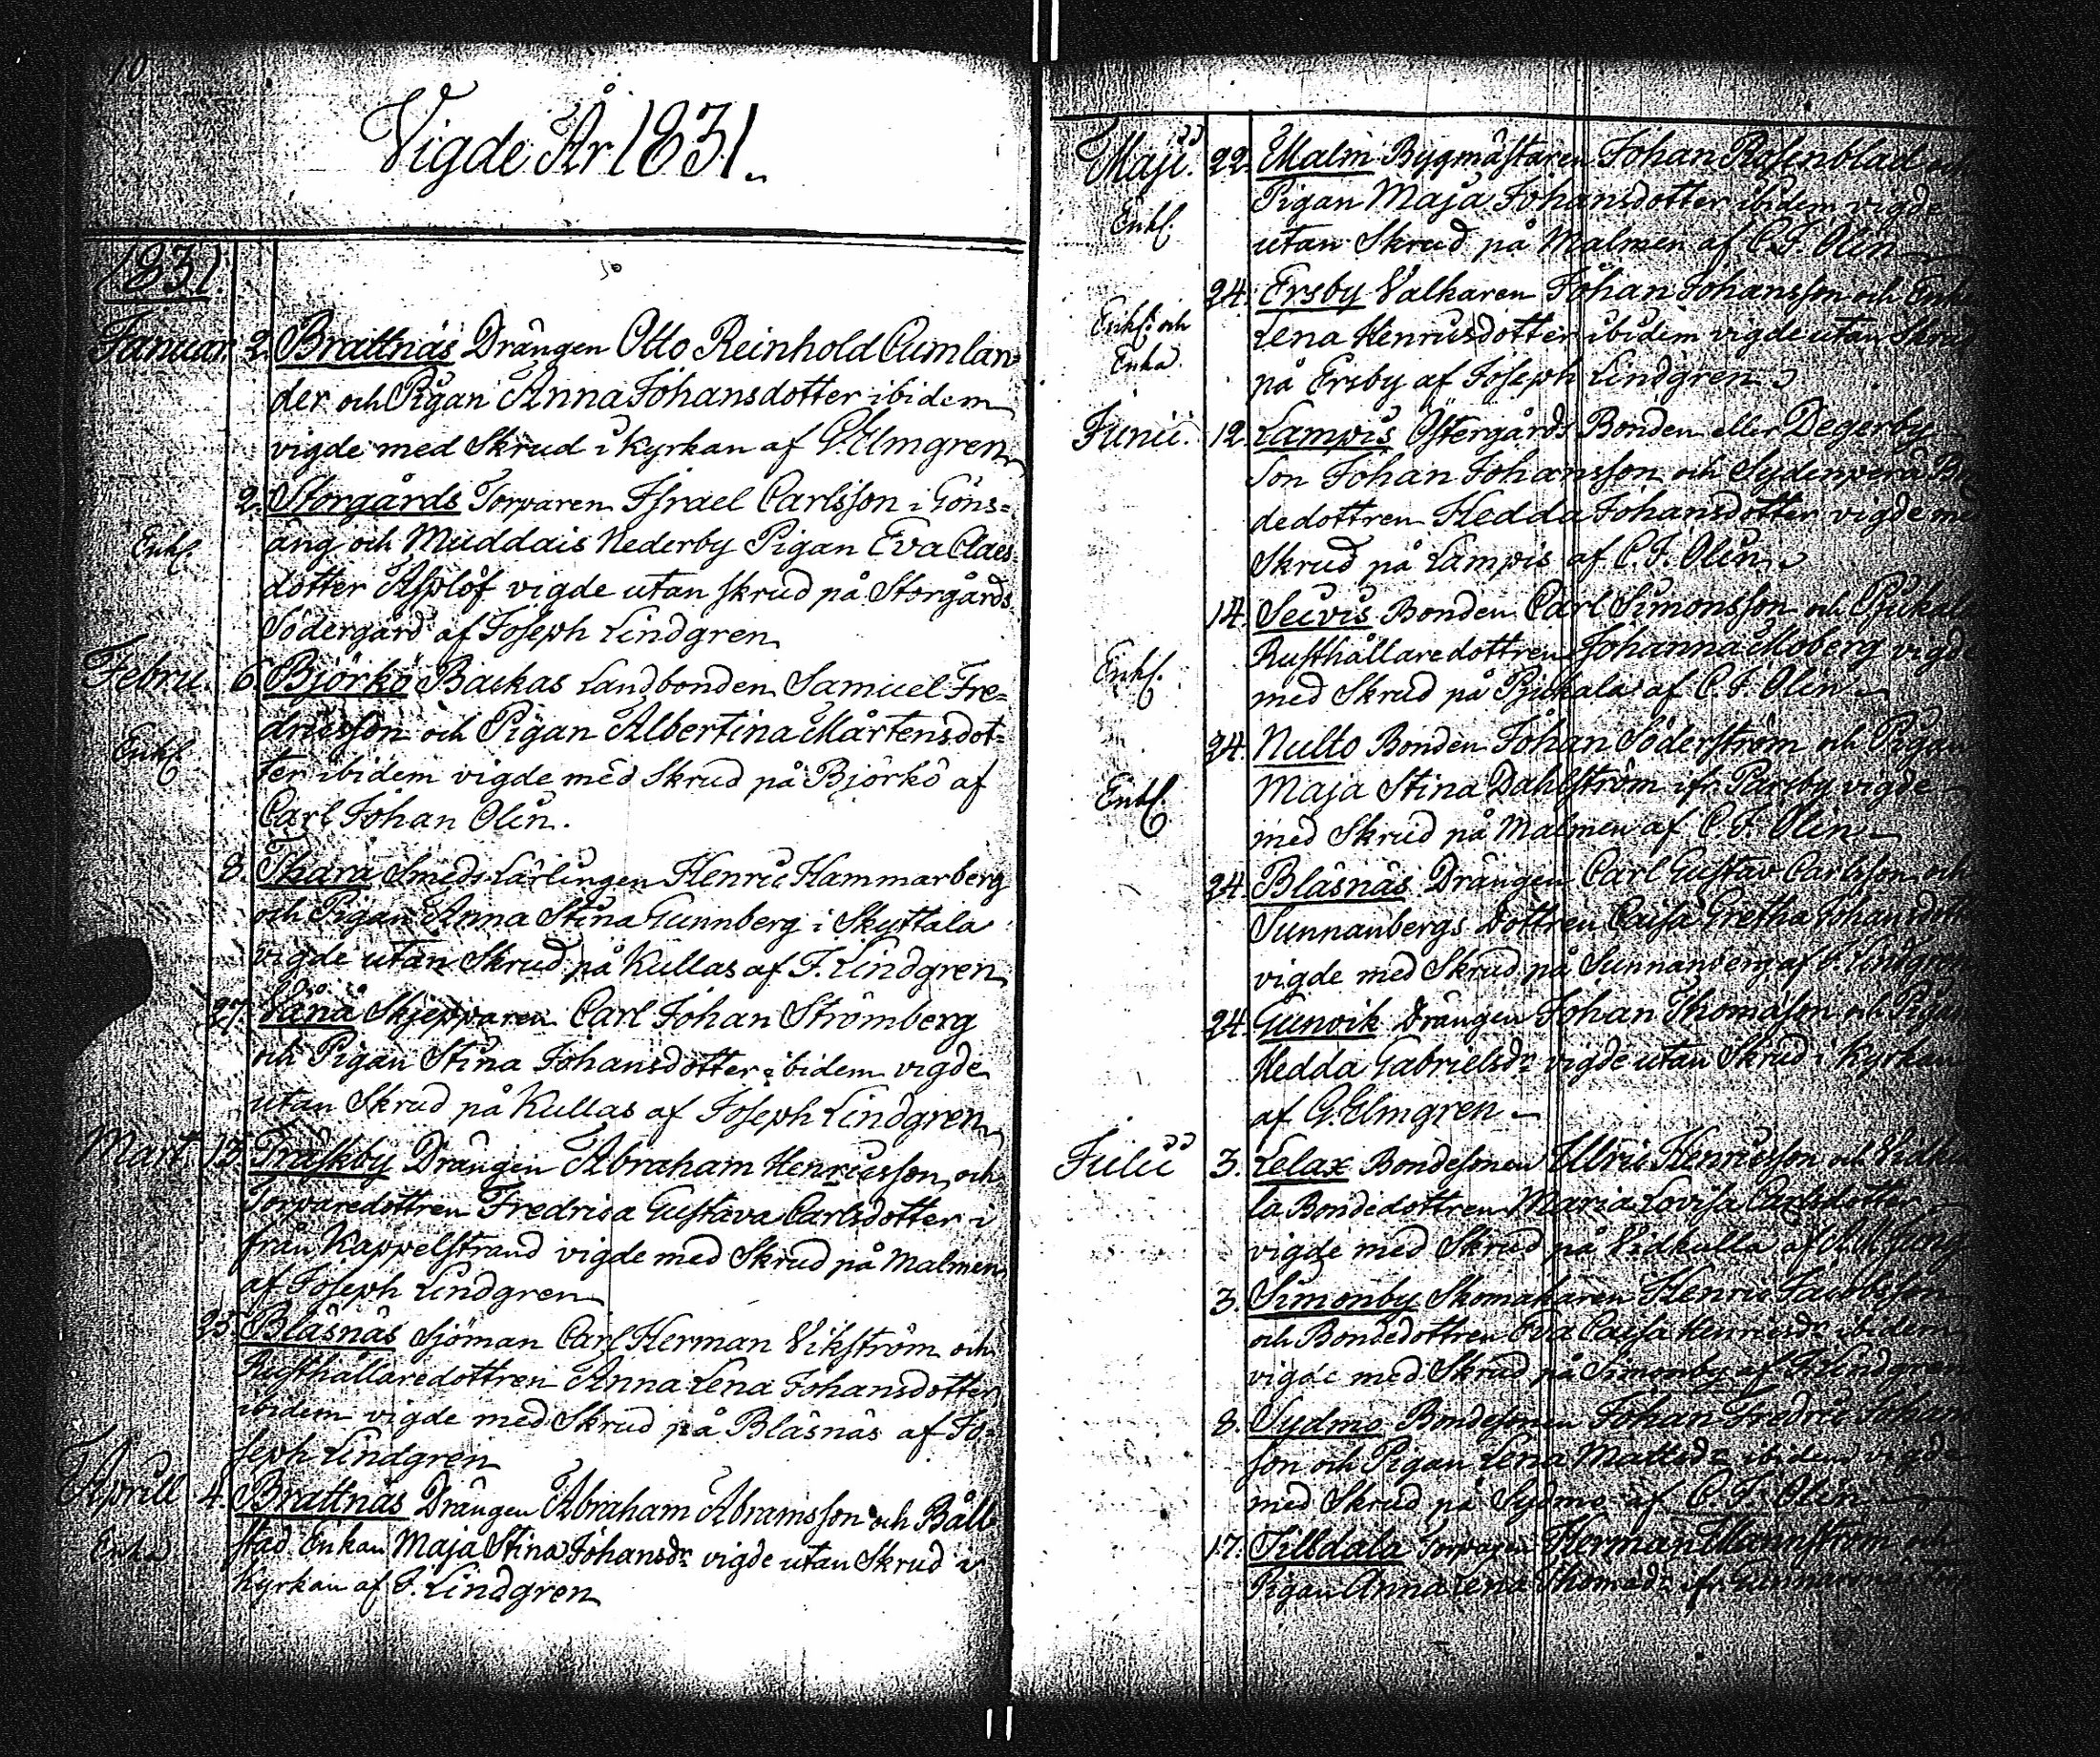 10
Vigde År 1831.
1831.
Januar. 2. Brattnäs Drängen Otto Reinhold Cumlan=
der och Pigan Anna Johansdotter ibidem
vigde med Skrud i Kyrkan af G. Elmgren
2. Storgårds Torparen Israel Carlsson i Göns=
Enkl. äng och Muddais Nederby Pigan Eva Claes
dotter Asplöf vigde utan skrud på Storgårds
Södergård af Joseph Lindgren
Febru. 6. Björkö Backas Landbonden Samuel Fre=
Enkl. dricsson och Pigan Albertina Mårtensdot=
ter ibidem vigde med Skrud på Björkö af
Carl Johan Olin.
8. Thara Smeds Lärlingen Henric Hammarberg
och Pigan Anna Stina Gunnberg i Skyttala
vigde utan Skrud på Kullas af J. Lindgren
27. Vånå Skjepparen Carl Johan Strömberg
och Pigan Stina Johansdotter ibidem vigde
utan Skrud på Kullas af Joseph Lindgren
Mart. 13. Träskby Drängen Abraham Henricsson och
Torparedottren Fredrica Gustava Carlsdotter i
från Kappelstrand vigde med Skrud på Malmen
af Joseph Lindgren
25. Bläsnäs Sjöman Carl Herman Vikström och
Rusthållaredottren Anna Lena Johansdotter
ibidem vigde med Skrud på Bläsnäs af Jo=
seph Lindgren
Aprill 4. Brattnäs Drängen Abraham Abramsson och Båll
Enka stad Enkan Maja Stina Johansdr vigde utan Skrud i
Kyrkan af J. Lindgren
Maji. 22. Malm Bygmästaren Johan Rosenblad och
Enkl. Pigan Maja Johansdotter ibidem vigde
utan Skrud på Malmen af C.J. Olin
24. Ersby Valkaren Johan Johansson och Enk
Enkl: och Enka. Lena Henricsdotter ibidem vigde utan Skrud
på Ersby af Joseph Lindgren
Junii. 12. Lampis Östergårds Bonden eller Degerby
son Johan Johansson och Sydenperä Bon
dedottren Hedda Johansdotter vigde med
Skrud på Lampis af C.J. Olin
14. Seivis Bonden Carl Simonsson och Pjukala
Enkl. Rusthållaredottren Johanna Moberg vigde
med Skrud på Pjukala af C.J. Olin
24. Nulto Bonden Johan Söderström och Pigan
Enkl. Maja Stina Dahlström ifr. Parsby vigde
med Skrud på Malmen af C.J. Olin
24. Bläsnäs Drängen Carl Gustav Carlsson och
Sunnanbergs Dottren Caisa Gretha Johansdott
vigde med Skrud på Sunnanberg af J. Lindgren
24. Gunvik Drängen Johan Thomasson och Pigan
Hedda Gabrielsdr vigde utan Skrud i Kyrkan
af G. Elmgren
Julii 3. Lelax Bondesonen Ulric Henricsson och Vidk
la Bondedottren Maria Lovisa Carlsdotter
vigde med Skrud på Vidkulla af
3. Simonby Skomakaren Henric Jacobsson
och Bondedottren Eva Caisa Henricsdr ibidem
vigde med Skrud på Simonby af J. Lindgren
8. Sydmo Bondesonen Johan Fredric Johans
son och Pigan Lena Mattsdr ibidem vigde
med Skrud på Sydmo af C.J. Olin
17. Tilldala Torparen Herman Mannström och
Pigan Anna Lena Thomasdr ifr.